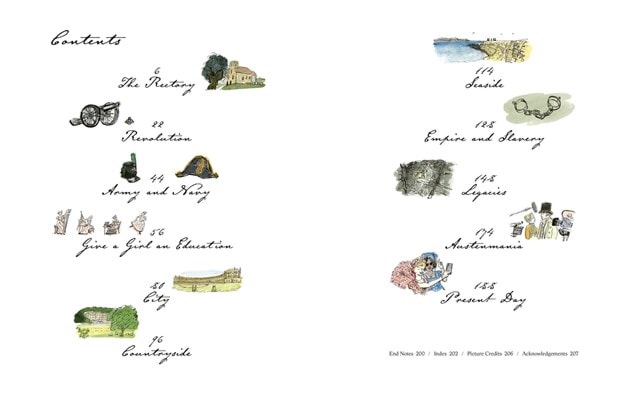 Contents
6
The Rectory
22
Revolution
44
Army and Navy
56
Give a Girl an Education
80
City
96
Countryside
114
Seaside
128
Empire and Slavery
148
Legacies
174
Austenmania
188
Present Day
End Notes 200 / Index 202 / Picture Credits 206 / Acknowledgements 207